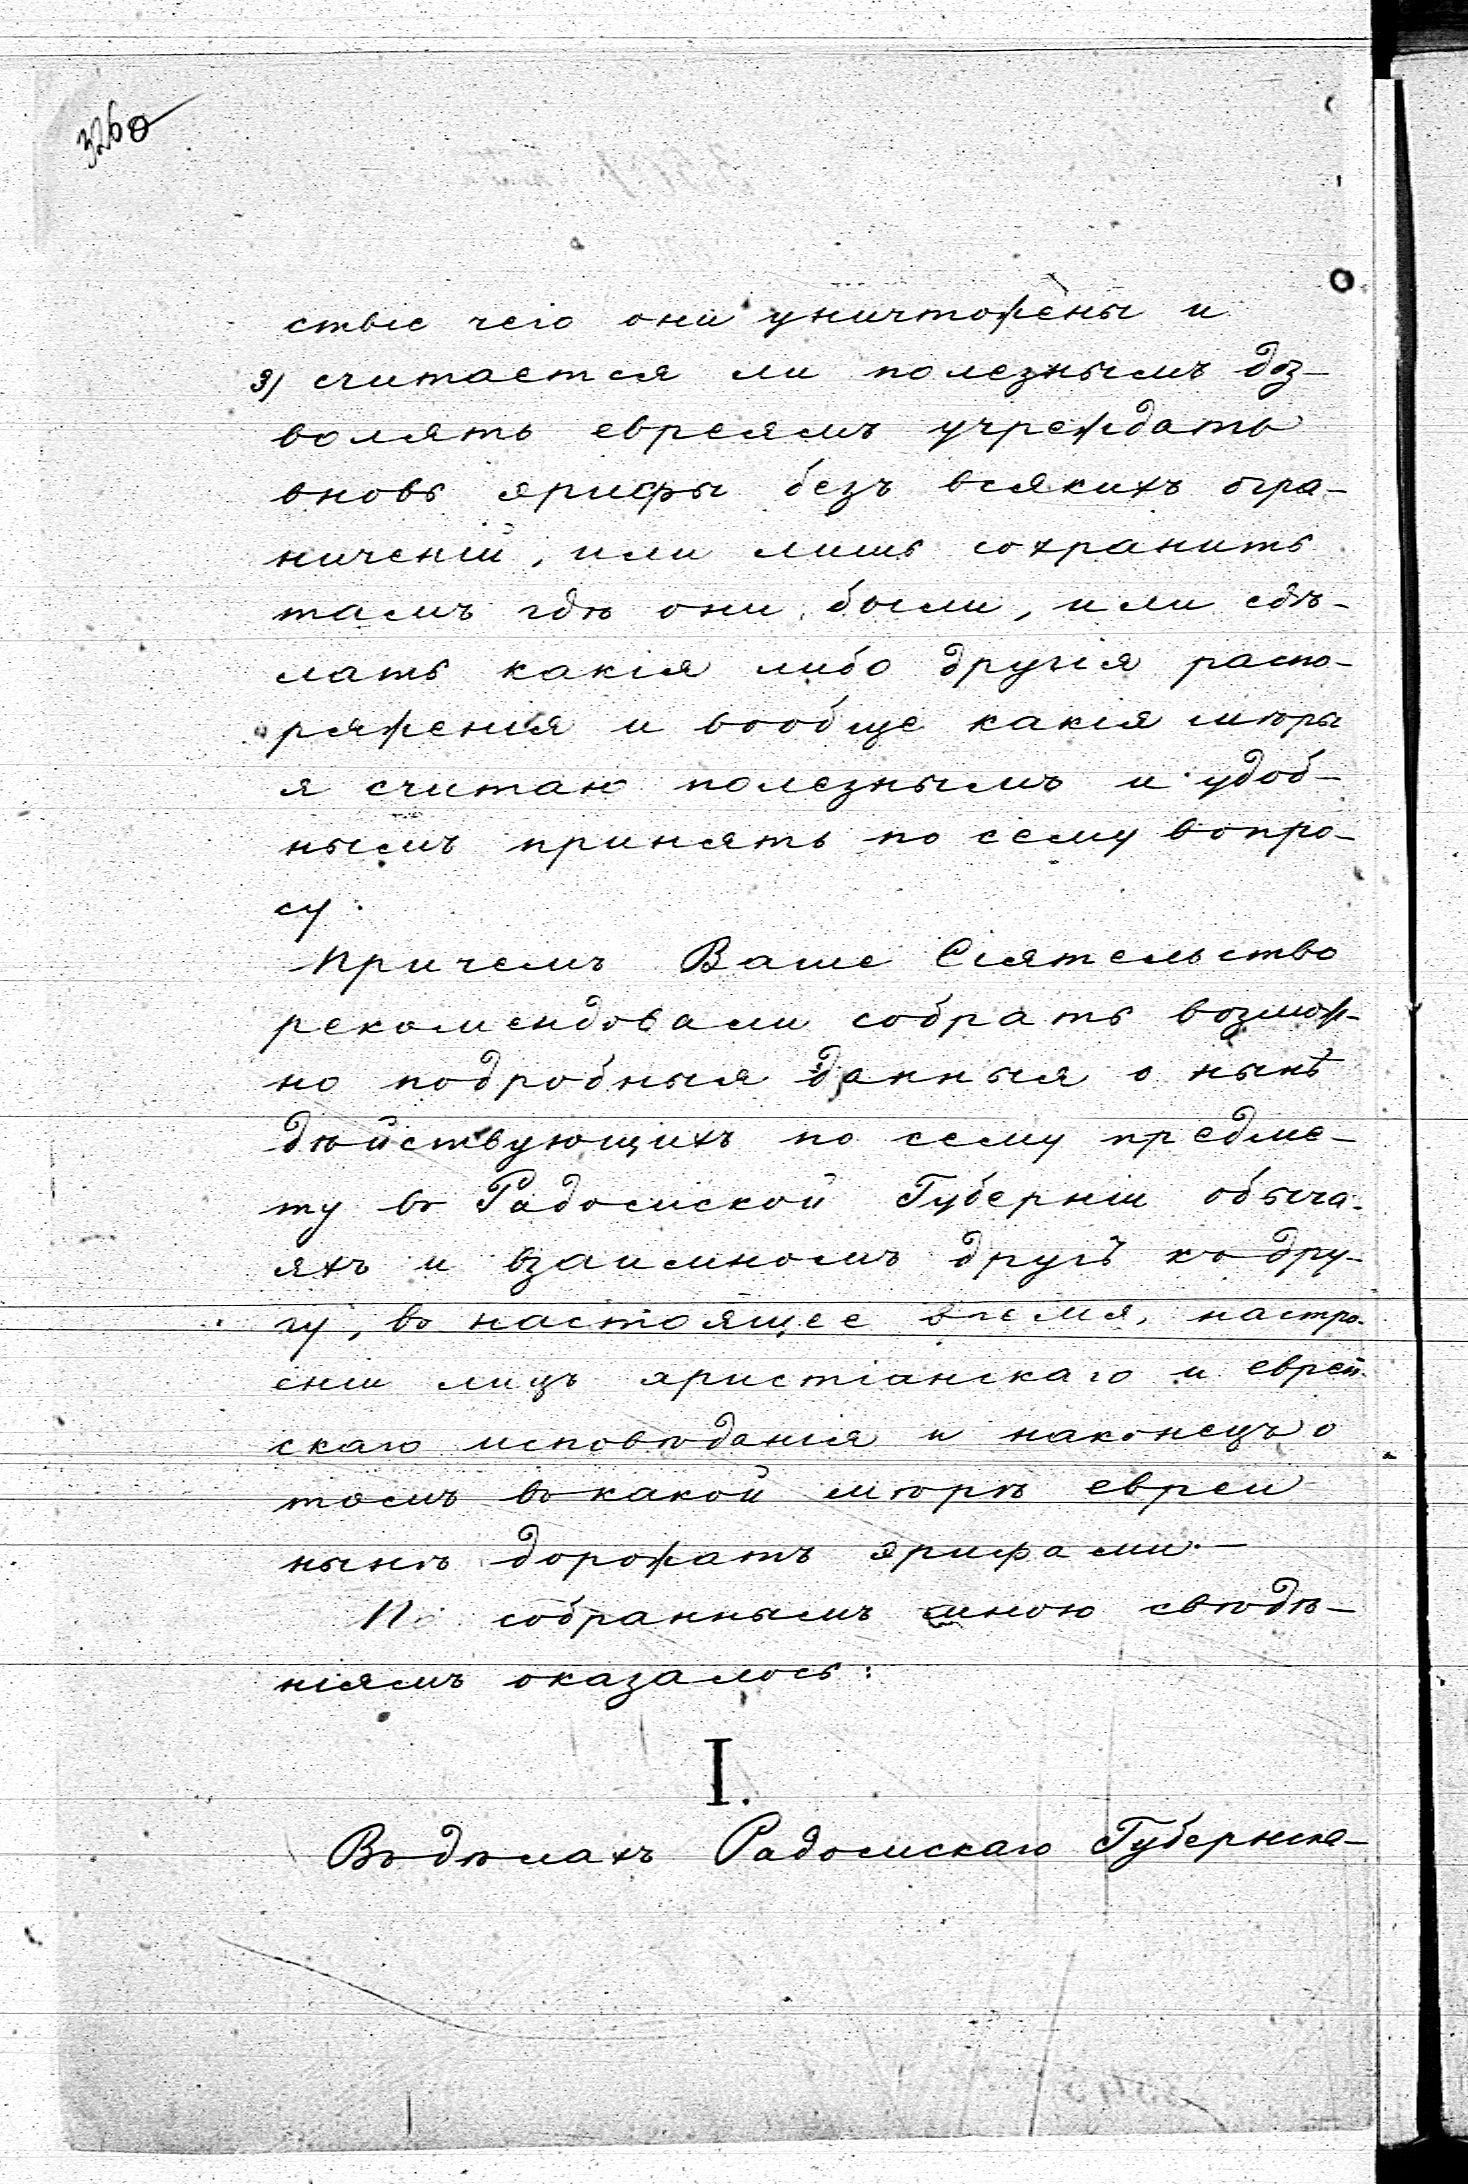 326о
ствіе чего они уничтожены и
3) считается ли полезнымъ доз-
волять евреямъ учреждать
вновь эрифы безъ всякихъ огра-
ниченій, или лишь сохранить
тамъ гдѣ они были, или сдѣ-
лать какія либо другія распо-
ряженія и вообще какія мѣры
я считаю полезнымъ и удоб-
нымъ принять по сему вопро-
су.
Причемъ Ваше Сіятельство
рекомендовали собрать возмож-
но подробныя данныя о нынѣ
дѣйствующихъ по сему предме-
ту въ Радомской Губерніи обыча-
яхъ и взаимномъ другъ къ дру-
гу, въ настоящее время, настро-
еніи лицъ христіанскаго и еврей-
скаго исповѣданія и наконецъ о
томъ въ какой мѣрѣ евреи
нынѣ дорожатъ эрифами.—
По собраннымъ мною свѣдѣ-
ніямъ оказалось:
I.
Въ дѣлахъ Радомскаго Губернска-